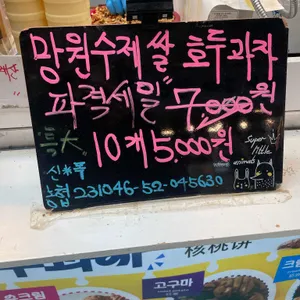 망원수제쌀 호두과자
파격세일 7,000원
10개 5,000원
농협 231046-52-045630
Super
little
animals
고구마
크림
核桃饼